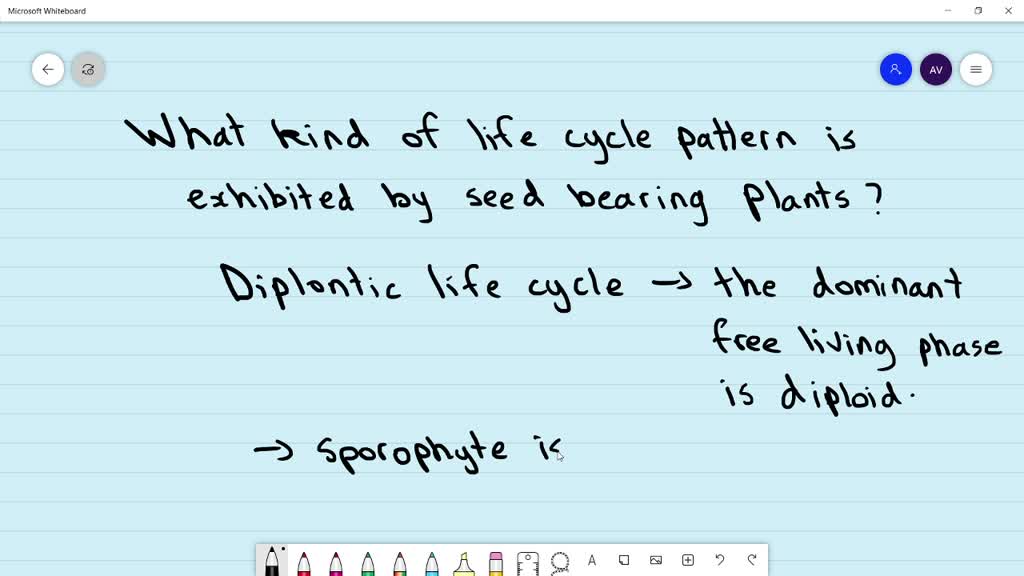 Microsoft Whiteboard
AV
What kind of life cycle pattern is
exhibited by seed bearing plants?
Diplontic life cycle → the dominant
free living phase
is diploid.
→ sporophyte is
A